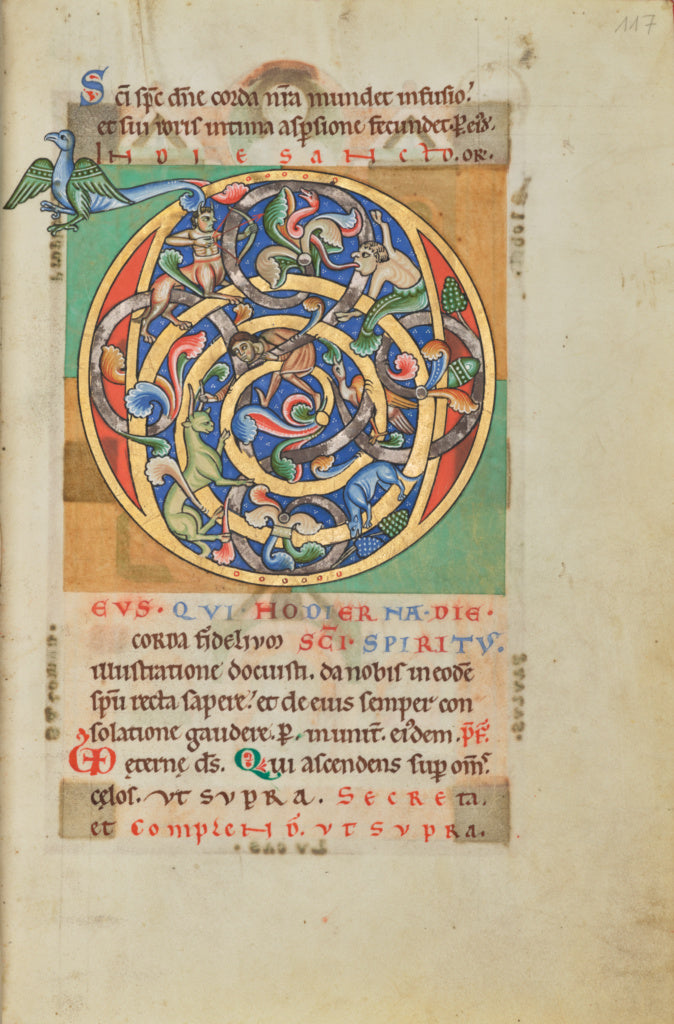 117
Sci spc dne corda nra mundet infusio.
et sui roris intima aspsione fecundet. P. eid.
IN DIE SANCTO. OR.
D
EVS. QUI HODIERNA DIE.
corda fidelium SCI SPIRITV.
illustratione docuisti. da nobis in eode
spu recta sapere. et de eius semper con
solatione gaudere. P. munit. eidem. PF.
eterne ds. Qui ascendens sup oms.
celos. VT SVPRA. SECRETA.
et COMPLEND. VT SVPRA.